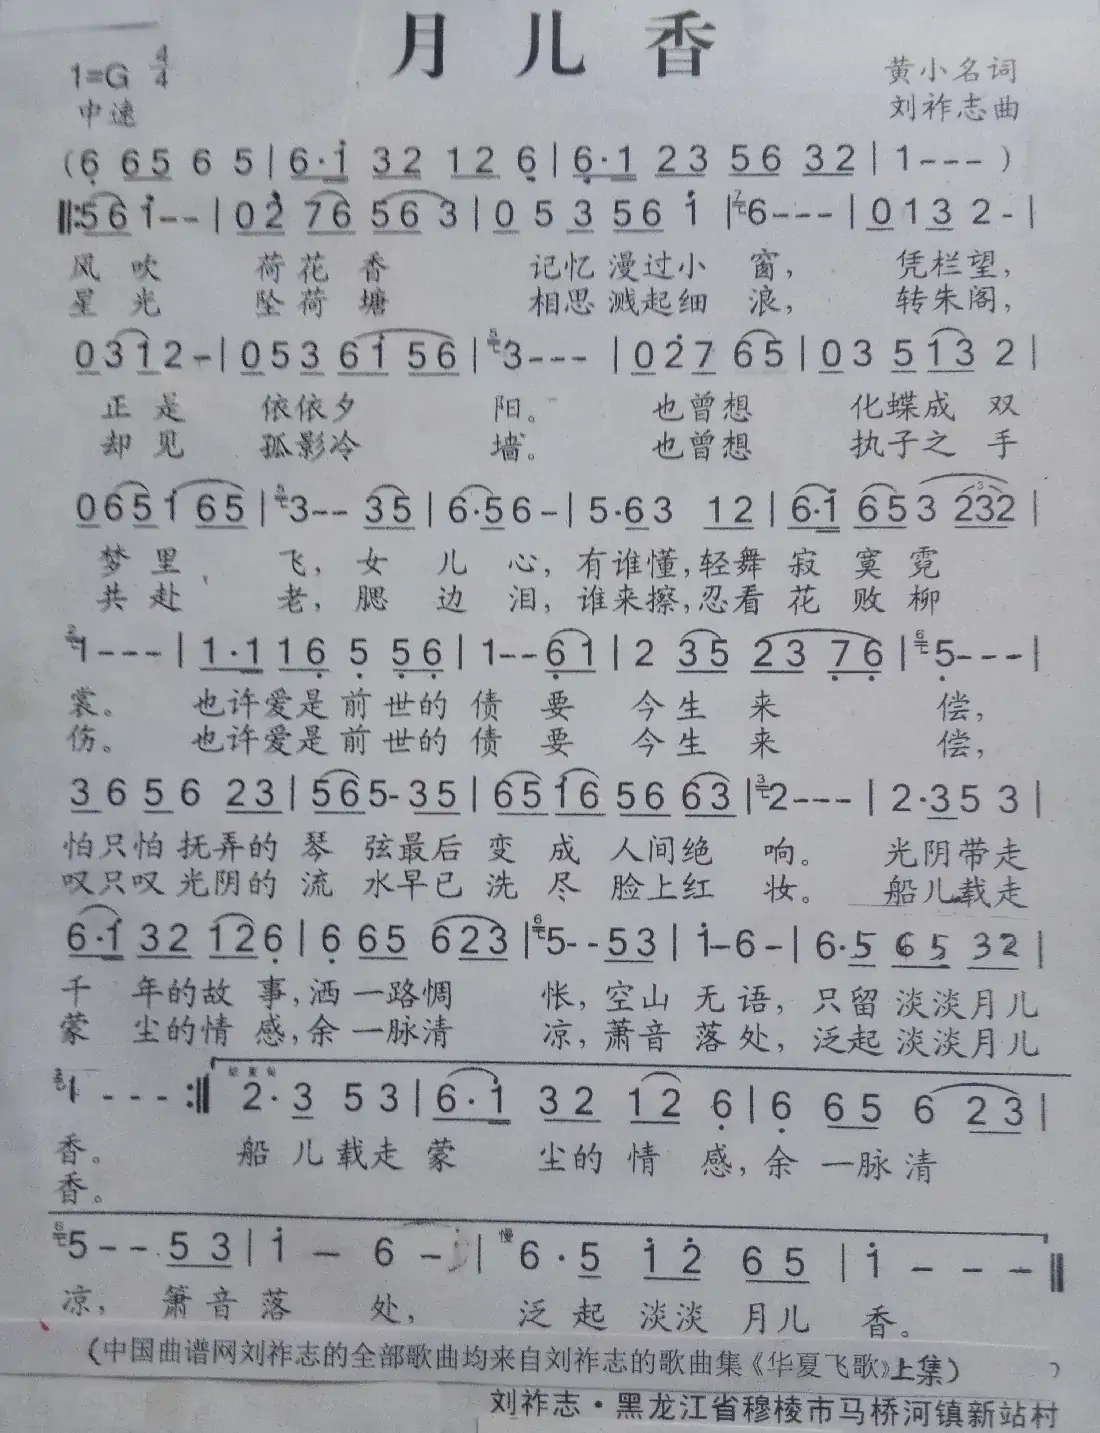 月儿香
1=G 4/4
中速
黄小名词
刘祚志曲
(6 65 6 5 | 6·1 32 12 6 | 6·1 23 56 32 | 1--- )
‖:56 1-- | 02 76 56 3 | 05 3 56 1 | 6--- | 013 2- |
风吹 荷花香 记忆漫过小窗, 凭栏望,
星光 坠荷塘 相思溅起细浪, 转朱阁,
0312- | 053 6156 | 3--- | 027 65 | 03 513 2 |
正是 依依夕阳。 也曾想 化蝶成双
却见 孤影冷墙。 也曾想 执子之手
065165 | 3-- 35 | 6·56- | 5·63 12 | 6·1 653 232 |
梦里飞, 女儿心, 有谁懂, 轻舞寂寞霓
共赴老, 腮边泪, 谁来擦, 忍看花败柳
1--- | 1·1 16 5 56 | 1--61 | 2 35 23 76 | 5--- |
裳。 也许爱是前世的债要今生来偿,
伤。 也许爱是前世的债要今生来偿,
3 6 5 6 23 | 565-35 | 6516 56 63 | 2--- | 2·35 3 |
怕只怕抚弄的琴弦最后变成人间绝响。 光阴带走
叹只叹光阴的流水早已洗尽脸上红妆。 船儿载走
6·1 32 126 | 6 65 623 | 5--53 | 1-6- | 6·5 65 32 |
千年的故事, 洒一路惆怅, 空山无语, 只留淡淡月儿
蒙尘的情感, 余一脉清凉, 萧音落处, 泛起淡淡月儿
1 --- :‖ 结束句 2·3 53 | 6·1 32 12 6 | 6 65 6 23 |
香。 船儿载走蒙尘的情感, 余一脉清
香。
5--53 | 1-6- | 慢 6·5 12 65 | 1--- ‖
凉, 箫音落处, 泛起淡淡月儿香。
(中国曲谱网刘祚志的全部歌曲均来自刘祚志的歌曲集《华夏飞歌》上集)
刘祚志·黑龙江省穆棱市马桥河镇新站村